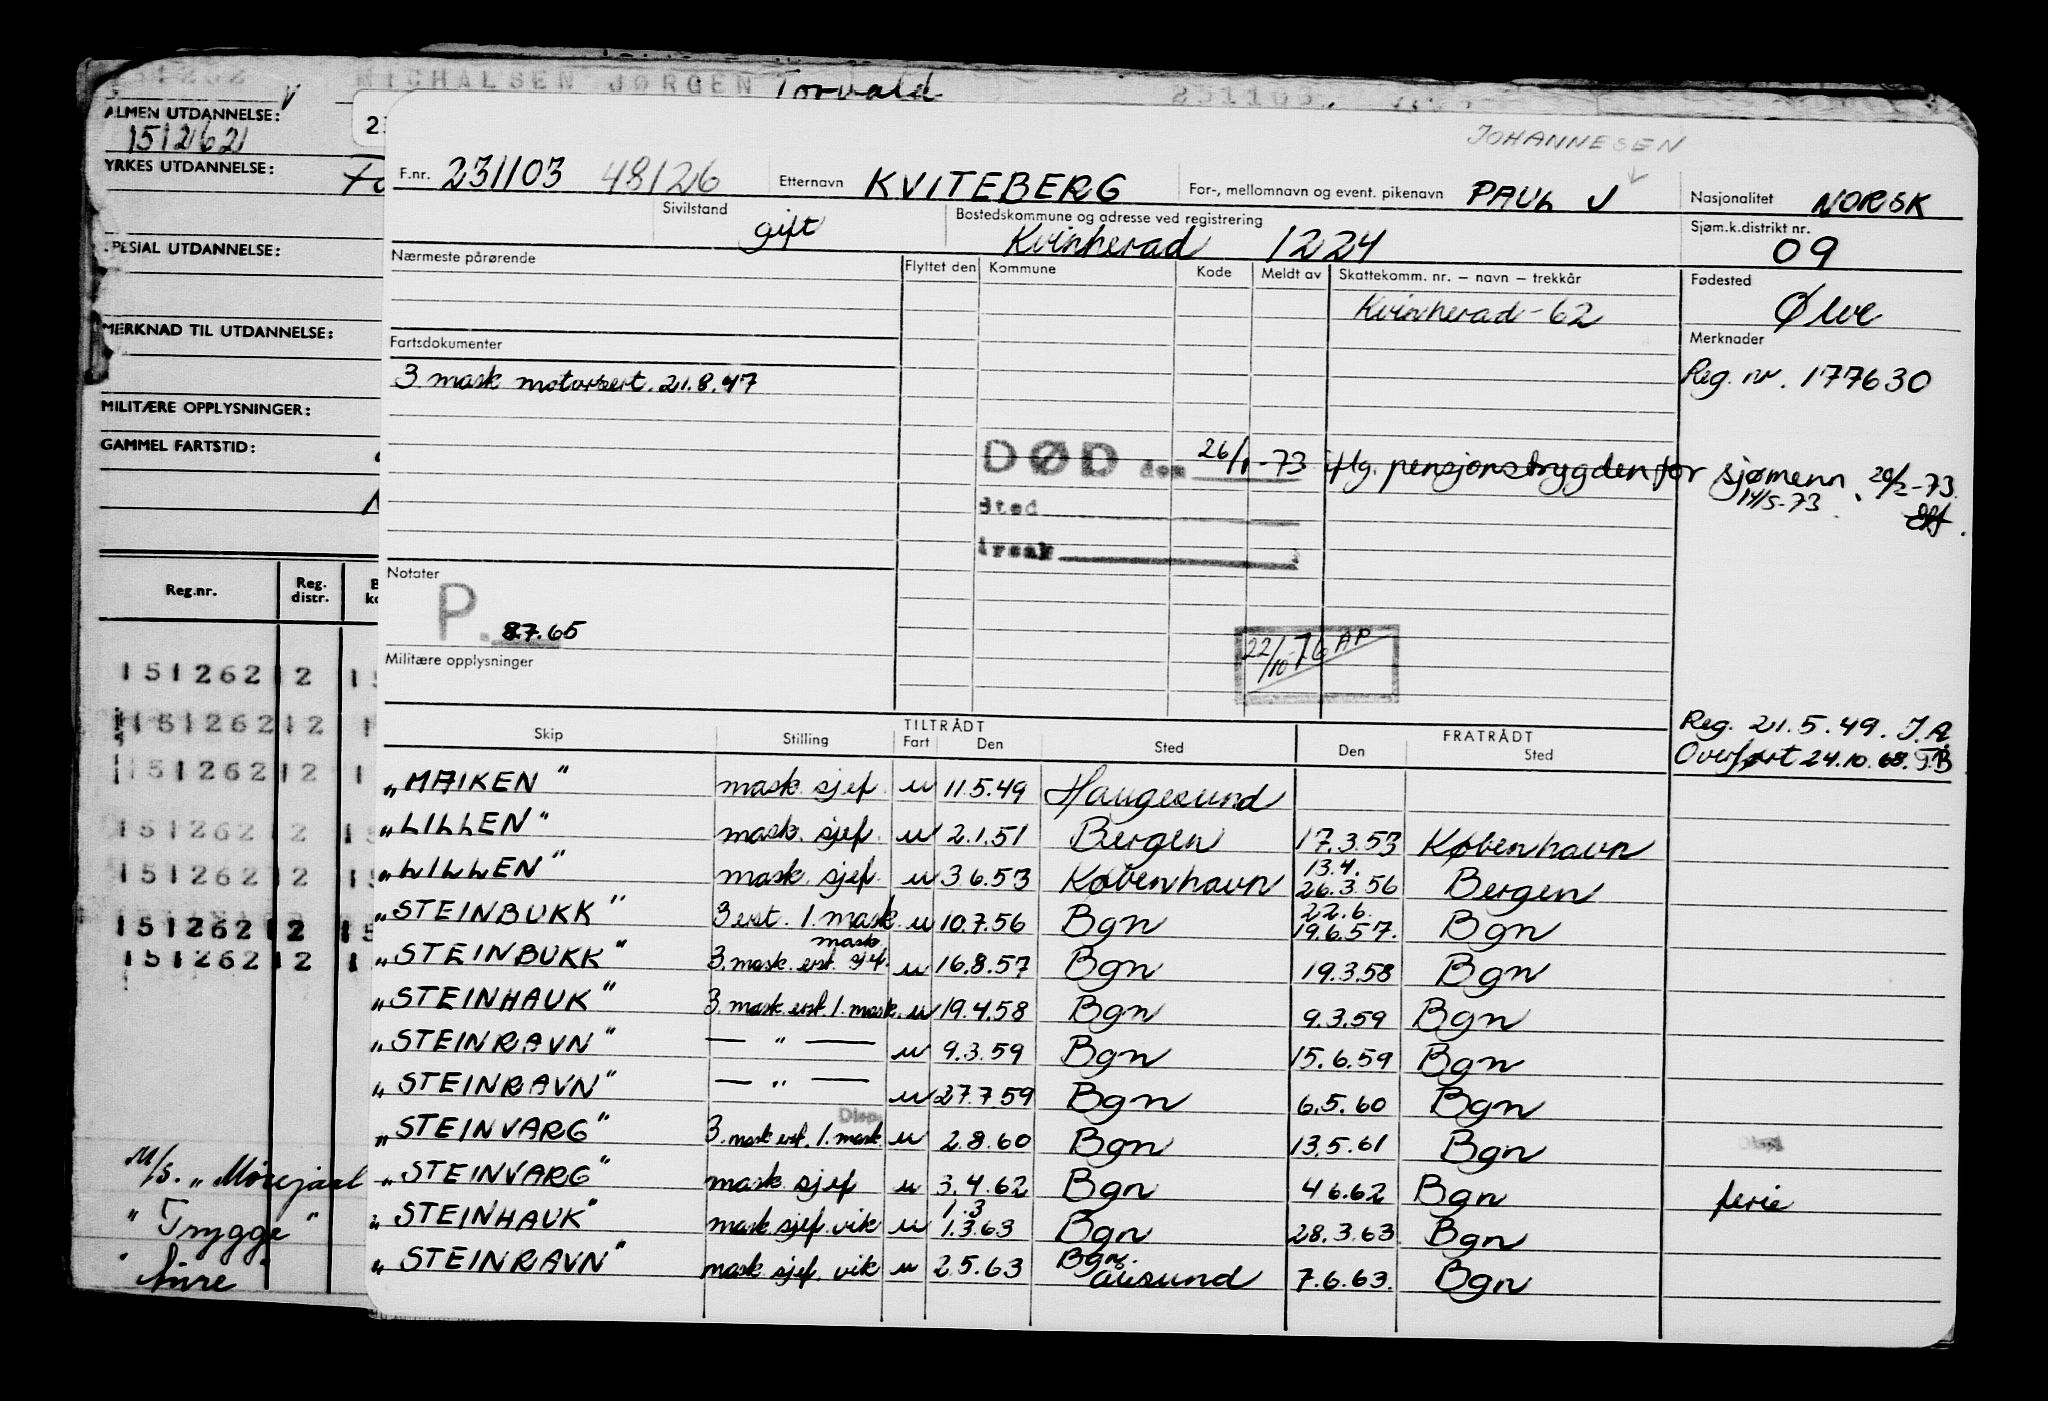 MICHALSEN JØRGEN Torvald 231103
ALMEN UTDANNELSE: V
151262
YRKES UTDANNELSE:
SPESIAL UTDANNELSE:
MERKNAD TIL UTDANNELSE:
MILITÆRE OPPLYSNINGER:
GAMMEL FARTSTID:
Reg.nr. Reg. distr.
151262 12
151262 12
151262 12
151262 12
151262 12
151262 12
151262 12
M/S. „Mørejarl
" Trygge "
" Aure "
JOHANNESEN
F.nr. 231103 48126 Etternavn KVITEBERG For-, mellomnavn og event. pikenavn PAUL J Nasjonalitet NORSK
Sivilstand gift Bostedskommune og adresse ved registrering Kvinherad 1224 Sjøm.k.distrikt nr. 09
Nærmeste pårørende Flyttet den Kommune Kode Meldt av Skattekomm. nr. – navn – trekkår Fødested
Kvinherad - 62 Ølve
Fartsdokumenter Merknader
3. mask motorsert. 21.8.47 Reg. nr. 177630
DØD den 26/1-73 iflg. pensjonstrygden for sjømenn. 20/2-73.
14/5-73
Sted
årsak
Notater
P. 8.7.65
22/10-76 AP
Militære opplysninger
Reg. 21.5.49. J.A
Overført 24.10.68. T.B
TILTRÅDT FRATRÅDT
Skip Stilling Fart Den Sted Den Sted
„MAIKEN" mask. sjef u 11.5.49 Haugesund
„LILLEN" mask. sjef. u 2.1.51 Bergen 17.3.53 København
„LILLEN" mask. sjef u 3.6.53 København 13.4. 26.3.56 Bergen
„STEINBUKK" 3 erst. 1. mask. u 10.7.56 Bgn 22.6. 19.6.57. Bgn
„STEINBUKK" 3. mask. erst. mask. sjef. u 16.8.57 Bgn 19.3.58 Bgn
„STEINHAUK" 3. mask. erst. 1. mask. u 19.4.58 Bgn 9.3.59 Bgn
„STEINRAVN" — " — u 9.3.59 Bgn 15.6.59 Bgn
„STEINRAVN" — " — u 27.7.59 Bgn 6.5.60 Bgn
„STEINVARG" 3. mask. erst. 1. mask. Disp. u 2.8.60 Bgn 13.5.61 Bgn
„STEINVARG" mask. sjef u 3.4.62 Bgn 4.6.62 Bgn ferie
„STEINHAUK" mask. sjef. vik u 1.3 1.3.63 Bgn 28.3.63 Bgn
„STEINRAVN" mask. sjef. vik u 2.5.63 Bgn. Ålesund 7.6.63. Bgn